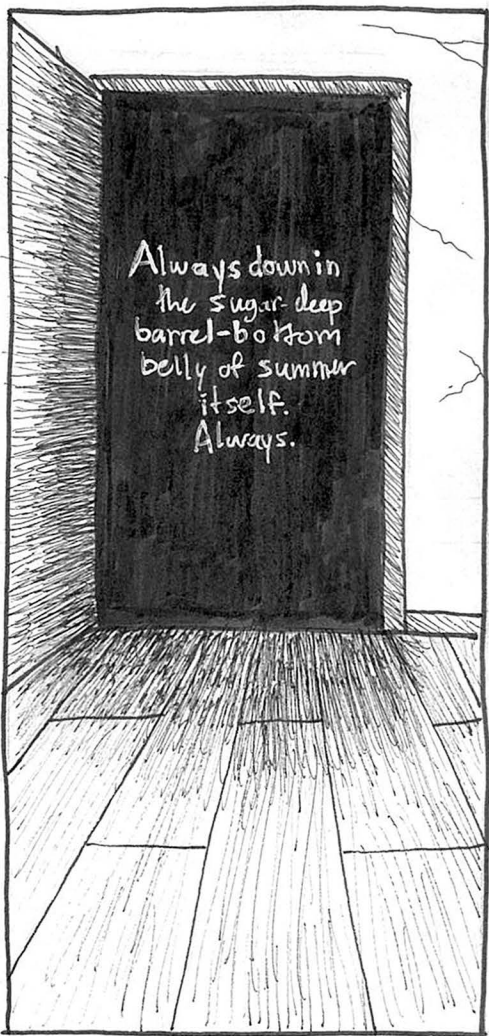 Always down in
the sugar-deep
barrel-bottom
belly of summer
itself.
Always.